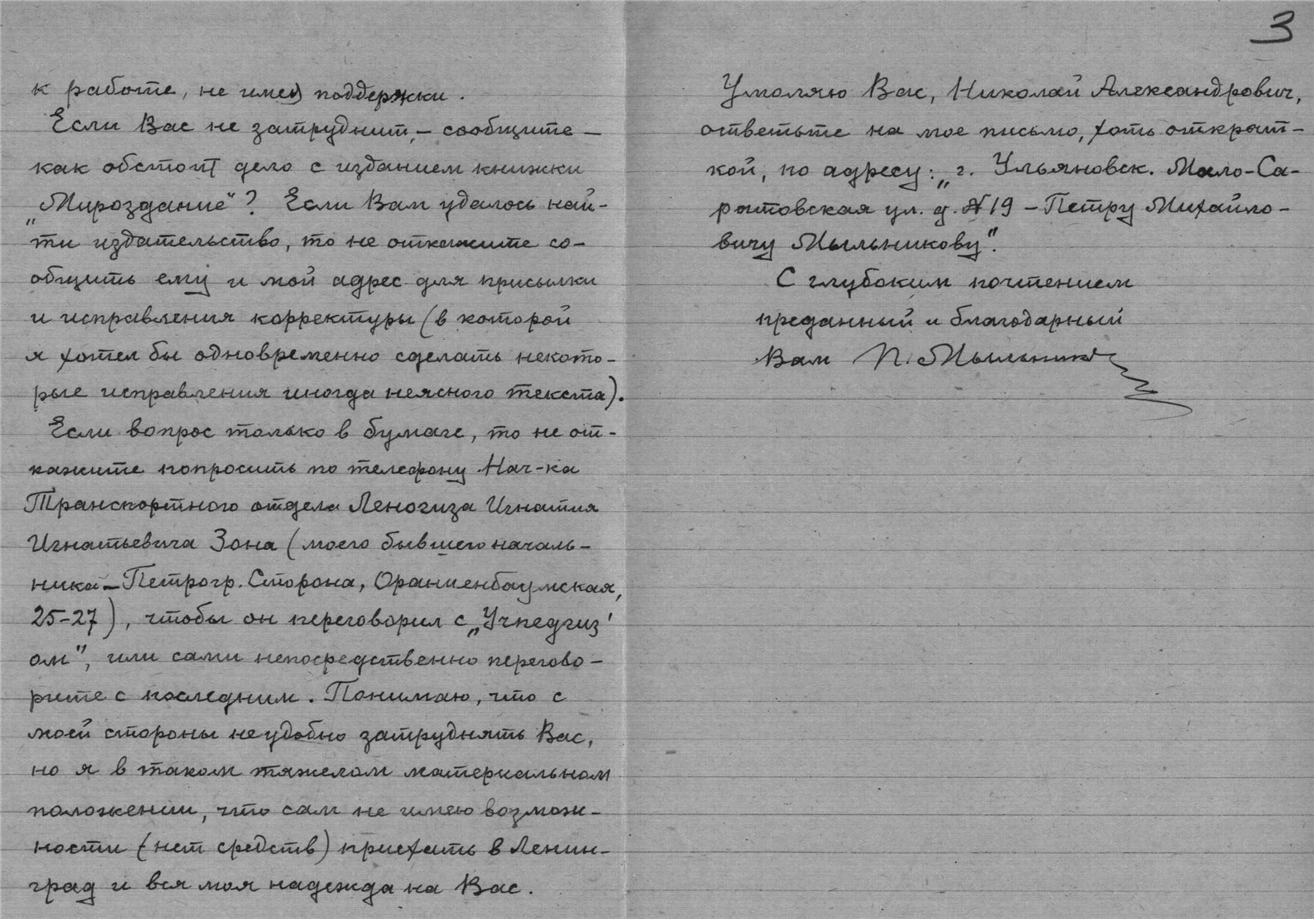 к работе, не имея поддержки.
Если Вас не затруднит, – сообщите –
как обстоит дело с изданием книжки
„Мироздание"? Если Вам удалось най-
ти издательство, то не откажите со-
общить ему и мой адрес для присылки
и исправления корректуры (в которой
я хотел бы одновременно сделать некото-
рые исправления иногда неясного текста).
Если вопрос только в бумаге, то не от-
кажите попросить по телефону Нач-ка
Транспортного отдела Леногиза Игнатия
Игнатьевича Зона (моего бывшего началь-
ника – Петрогр. Сторона, Ораниенбаумская,
25-27), чтобы он переговорил с „Учпедгиз'
ом", или сами непосредственно перегово-
рите с последним. Понимаю, что с
моей стороны неудобно затруднять Вас,
но я в таком тяжелом материальном
положении, что сам не имею возмож-
ности (нет средств) приехать в Ленин-
град и вся моя надежда на Вас.
3
Умоляю Вас, Николай Александрович,
ответьте на мое письмо, хоть открыт-
кой, по адресу: „г. Ульяновск. Мало-Са-
ратовская ул. д. №19 – Петру Михайло-
вичу Мыльникову".
С глубоким почтением
преданный и благодарный
Вам П. Мыльников